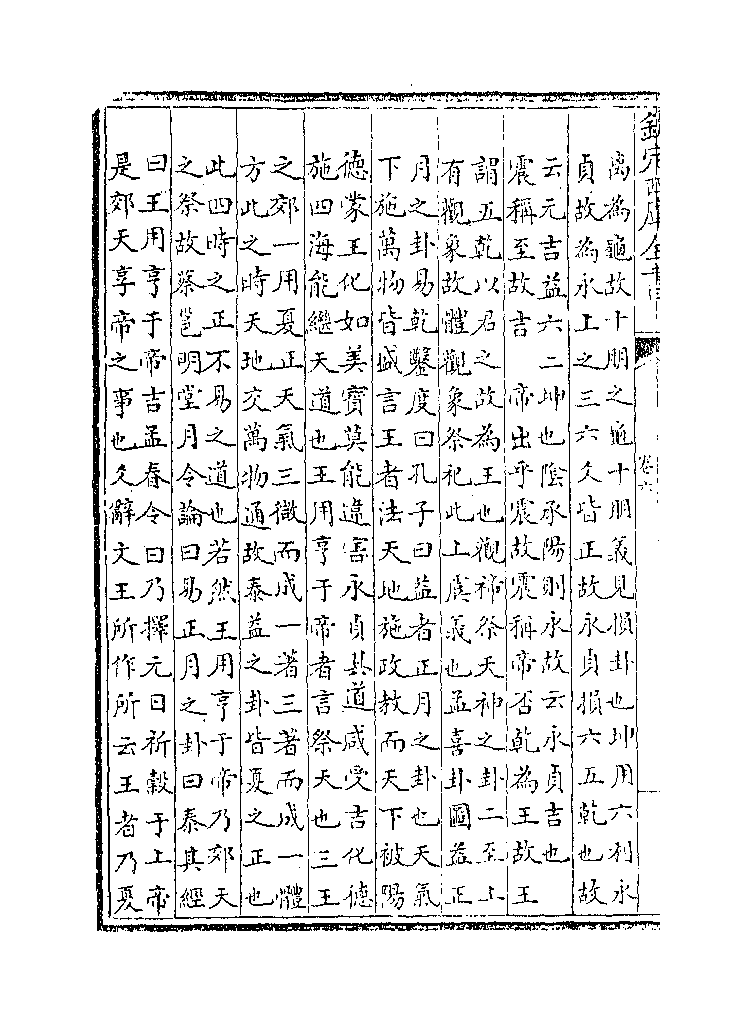 欽定四庫全書
卷六
離為龜故十朋之龜十朋義見損卦也坤用六利永
貞故為永上之三六爻皆正故永貞損六五乾也故
云元吉益六二坤也陰承陽則永故云永貞吉也
震稱至故吉　帝出乎震故震稱帝否乾為王故王
謂五乾以君之故為王也觀禘祭天神之卦二至上
有觀象故體觀象祭祀此上虞義也孟喜卦圖益正
月之卦易乾鑿度曰孔子曰益者正月之卦也天氣
下施萬物皆盛言王者法天地施政教而天下被陽
德蒙王化如美寶莫能違害永貞其道咸受吉化德
施四海能繼天道也王用亨于帝者言祭天也三王
之郊一用夏正天氣三微而成一著三著而成一體
方此之時天地交萬物通故泰益之卦皆夏之正也
此四時之正不易之道也若然王用亨于帝乃郊天
之祭故蔡邕明堂月令論曰易正月之卦曰泰其經
曰王用亨于帝吉孟春令曰乃擇元日祈穀于上帝
是郊天享帝之事也爻辭文王所作所云王者乃夏